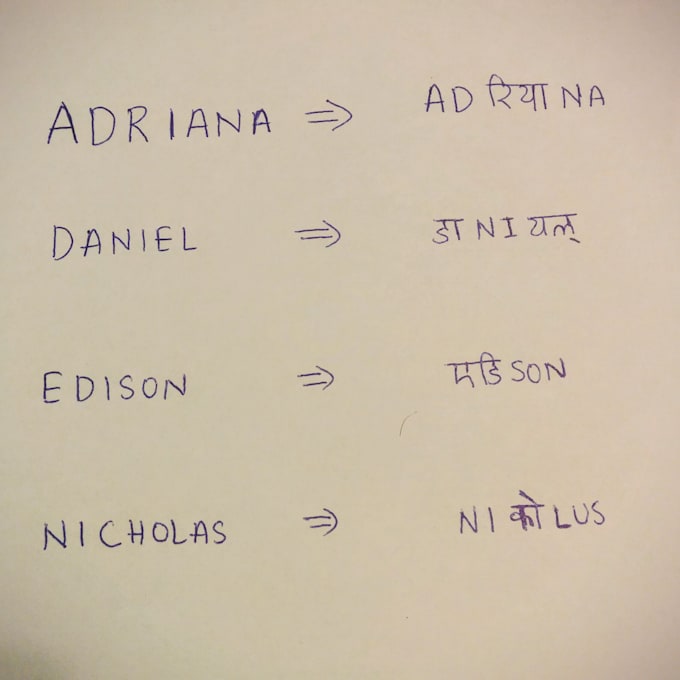 ADRIANA ⇒ AD रिया NA
DANIEL ⇒ डा NI यल्
EDISON ⇒ एडि SON
NICHOLAS ⇒ NI को LUS